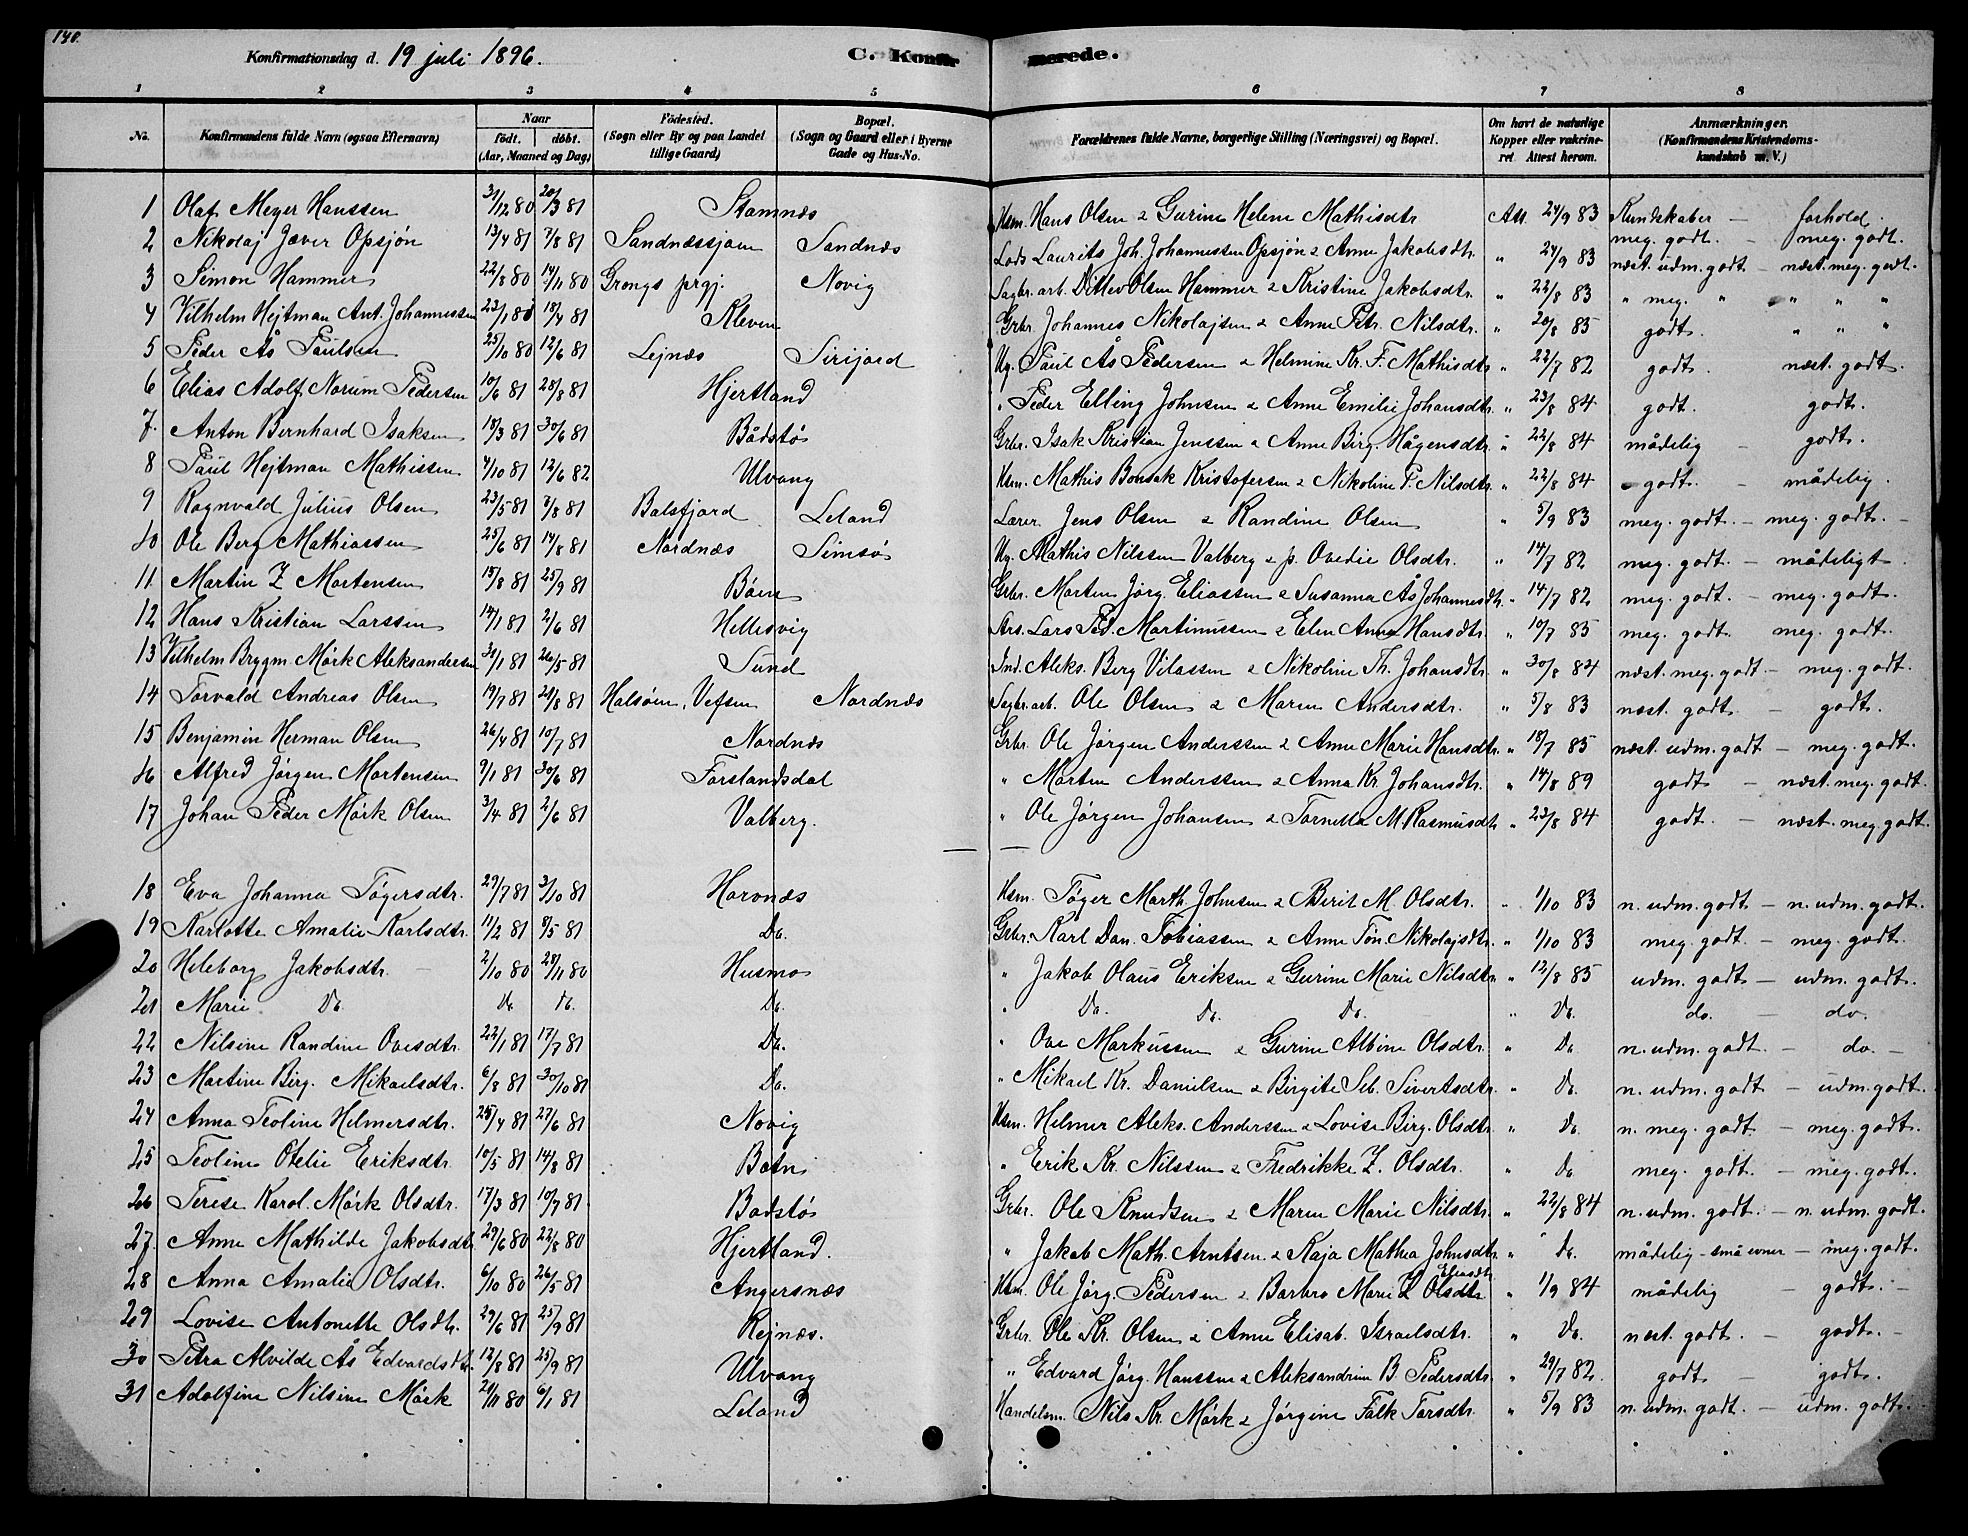 140.
Konfirmationsdag d. 19 juli 1896. C. Konfirmerede.
1 2 3 4 5 6 7 8
No. Konfirmandens fulde Navn (ogsaa Efternavn) Naar födt. döbt. (Aar, Maaned og Dag) Födested. (Sogn eller By og paa Landet tillige Gaard) Bopæl. (Sogn og Gaard eller i Byerne Gade og Hus-No. Forældrenes fulde Navne, borgerlige Stilling (Næringsvei) og Bopæl. Om havt de naturlige Kopper eller vakcineret Attest herom. Anmærkninger. (Konfirmandens Kristendomskundskab m. V.)
1 Olaf Meyer Hanssen 31/12 80 20/3 81 Stamnæs Hsm. Hans Olsen & Gurine Helene Mathisdtr Att. 24/9 83 Kundskaber — forhold. meg. godt. — meg. godt.
2 Nikolaj Jæver Opsjøn 13/4 81 7/8 81 Sandnæssjøen Sandnæs Lods Laurits Joh. Johannessen Opsjøn & Anne Jakobsdtr " 24/9 83 næst. udm. godt — næst. meg. godt.
3 Simon Hammer 22/8 80 14/11 80 Grongs prgj. Novig Sagbr. arb. Ditlev Olsen Hammer & Kristine Jakobsdtr. " 22/8 83 " meg. " " " "
4 Vilhelm Hejtman Ant. Johannessen 23/1 81 18/4 81 Kleven Grbr. Johannes Nikolajsen & Anne Petr. Nilsdtr. " 20/8 85 godt. " " "
5 Peder Ås Paulsen 25/10 80 12/6 81 Lejnæs Sirijord Ug. Paul Ås Pedersen & Helmine Kr. F. Mathisdtr " 22/7 82 godt. næst. godt.
6 Elias Adolf Norum Pedersen 10/6 81 28/8 81 Hjertland " Peder Elling Johnsen & Anne Emilie Johansdtr. " 23/8 84 godt. godt.
7. Anton Bernhard Isaksen 18/3 81 30/6 81 Bådstø Grbr. Isak Kristian Jenssen & Anne Birg. Hågensdtr. " 22/8 84 mådelig — godt.
8 Paul Hejtman Mathissen 4/10 81 12/6 82 Ulvang Hsm. Mathis Bonsak Kristofersen & Nikoline P. Nilsdtr. " 22/8 84 godt. — mådelig.
9 Ragnvald Julius Olsen 23/5 81 7/8 81 Balsfjord Leland Lærer. Jens Olsen & Randine Olsen " 5/9 83 meg. godt. — meg. godt. —
10 Ole Berg Mathiassen 25/6 81 14/8 81 Nordnæs Simsø Ug. Mathis Nilssen Valberg & p. Ovedie Olsdtr. " 14/7 82 meg. godt. — mådeligt.
11. Martin Z Mortensen 15/8 81 25/9 81 Bøen Grbr. Morten Jørg. Eliassen & Susanna Ås Johannesdtr. " 14/7 82 meg. godt. — meg. godt.
12 Hans Kristian Larssen 14/1 81 2/6 81 Hellesvig Lars Ped. Martinussen & Elen Anna Hansdtr. " 10/7 85 meg. godt. meg. godt.
13 Vilhelm Brygm. Mørk Aleksandersen 30/1 81 26/5 81 Sund Ind. Aleks. Berg Vilassen & Nikoline Th. Johansdtr. " 30/8 84 næst. meg. godt — meg. godt.
14 Torvald Andreas Olsen 19/7 81 21/8 81 Halsøen, Vefsen Nordnæs Sagbr. arb. Ole Olsen & Maren Andersdtr. " 5/8 83 næst. godt — godt.
15 Benjamin Herman Olsen 26/4 81 10/7 81 Nordnæs Grbr. Ole Jørgen Anderssen & Anne Marie Hansdtr. " 18/7 85 næst. udm. godt — meg. godt.
16 Alfred Jørgen Mortensen 9/1 81 30/6 81 Forslandsdal " Morten Anderssen & Anna Kr. Johansdtr. " 14/8 89 godt — næst. meg. godt.
17 Johan Peder Mørk Olsen 3/4 81 2/6 81 Valberg. " Ole Jørgen Johansen & Tornetta M. Rasmusdtr " 23/8 84 godt. — næst. meg. godt.
18 Eva Johanna Tøgersdtr. 29/7 81 3/10 81 Hornæs Hsm. Tøger Marth. Johnsen & Berit M. Olsdtr. " 1/10 83 n. udm. godt — n. udm. godt.
19 Karlotte Amalie Karlsdtr. 11/2 81 8/5 81 Do. Grbr. Karl Dan. Tobiassen & Anne Tøn. Nikolajsdtr. " 1/10 83 meg. godt. — meg. godt.
20 Heleborg Jakobsdtr. — 2/10 80 28/11 80 Husmo " Jakob Olaus Eriksen & Gurine Marie Nilsdtr. " 12/8 85 udm. godt — udm. godt.
21 Marie Do Do do. Do. " Do. Do. Do. " Do. do. — do.
22 Nilsine Randine Ovesdtr. 22/1 81 17/7 81 Do. " Ove Markussen & Gurine Albine Olsdtr. " Do n. udm. godt. — do. —
23 Martine Birg. Mikaelsdtr. 6/8 81 30/10 81 Do. " Mikael Kr. Danielsen & Birgite Seb. Sivertsdtr. " Do. n. udm. godt — udm. godt.
24 Anna Teoline Helmersdtr. 25/4 81 27/6 81 Novig Hsm. Helmer Aleks. Anderssen & Lovise Birg. Olsdtr. " Do. n. meg. godt. — meg. godt.
25 Teoline Otelie Eriksdtr. 10/5 81 14/8 81 Botn " Erik Kr. Nilssen & Fredrikke Z. Olsdtr. " Do meg. godt. — meg. godt.
26 Terese Karol. Mørk Olsdtr. 17/3 81 10/7 81 Badstø Grbr. Ole Knudsen & Maren Marie Nilsdtr. " 22/8 84 n. udm. godt. — n. udm. godt.
27. Anne Mathilde Jakobsdtr 29/6 80 22/8 80 Hjertland. " Jakob Math. Arntsen & Kaja Mathea Johnsdtr " Do. mådelig - små evner — meg. godt.
28 Anna Amalie Olsdtr. 6/10 80 26/5 81 Angersnæs Hsm. Ole Jørg. Pedersen & Barbro Marie Z Olsdtr Eliasdtr " 1/9 84 mådelig — godt. —
29 Lovise Antonette Olsdtr. 29/6 81 25/9 81 Rejnæs. Grbr. Ole Kr. Olsen & Anne Elisab. Israelsdtr. " Do. næst. godt. — godt. —
30 Petra Alvilde Ås Edvardsdtr. 12/8 81 25/9 81 Ulvang " Edvard Jørg. Hanssen & Aleksandrine B. Pedersdtr. " 29/7 82. godt — godt.
31 Adolfine Nilsine Mørk 21/11 80 6/1 81 Leland Handelsm. Nils Kr. Mørk & Jørgine Falk Torsdtr. " 5/9 83 n. udm. godt. — udm. godt.